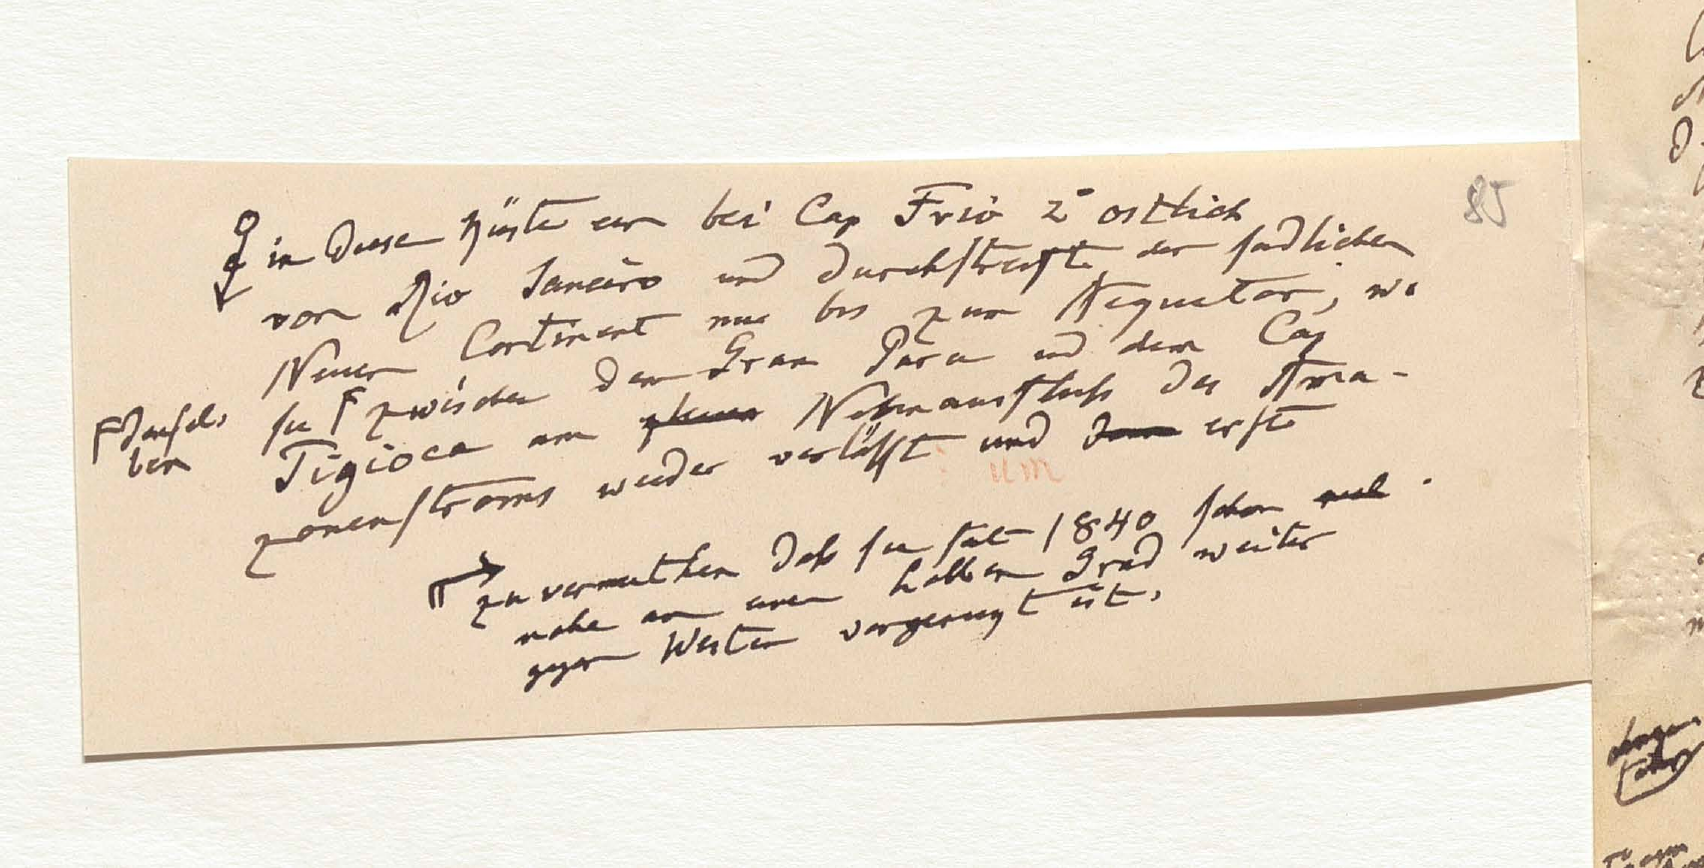 85
in diese Küste ein bei Cap Frio 2° ostlich
von Rio Janeiro und durchstreift den sudlichen
Neuen Continent nur bis zum Aequator, wo
sie zwischen dem Gran Para und dem Cap
denselben
Tigioca am Nebenausfluss des Ama-
zonenstroms wieder verlässt und erst
um
zu vermuthen daß sie seit 1840 schon
nahe an einen halben Grad weiter
gegen Westen vorgerugt ist.